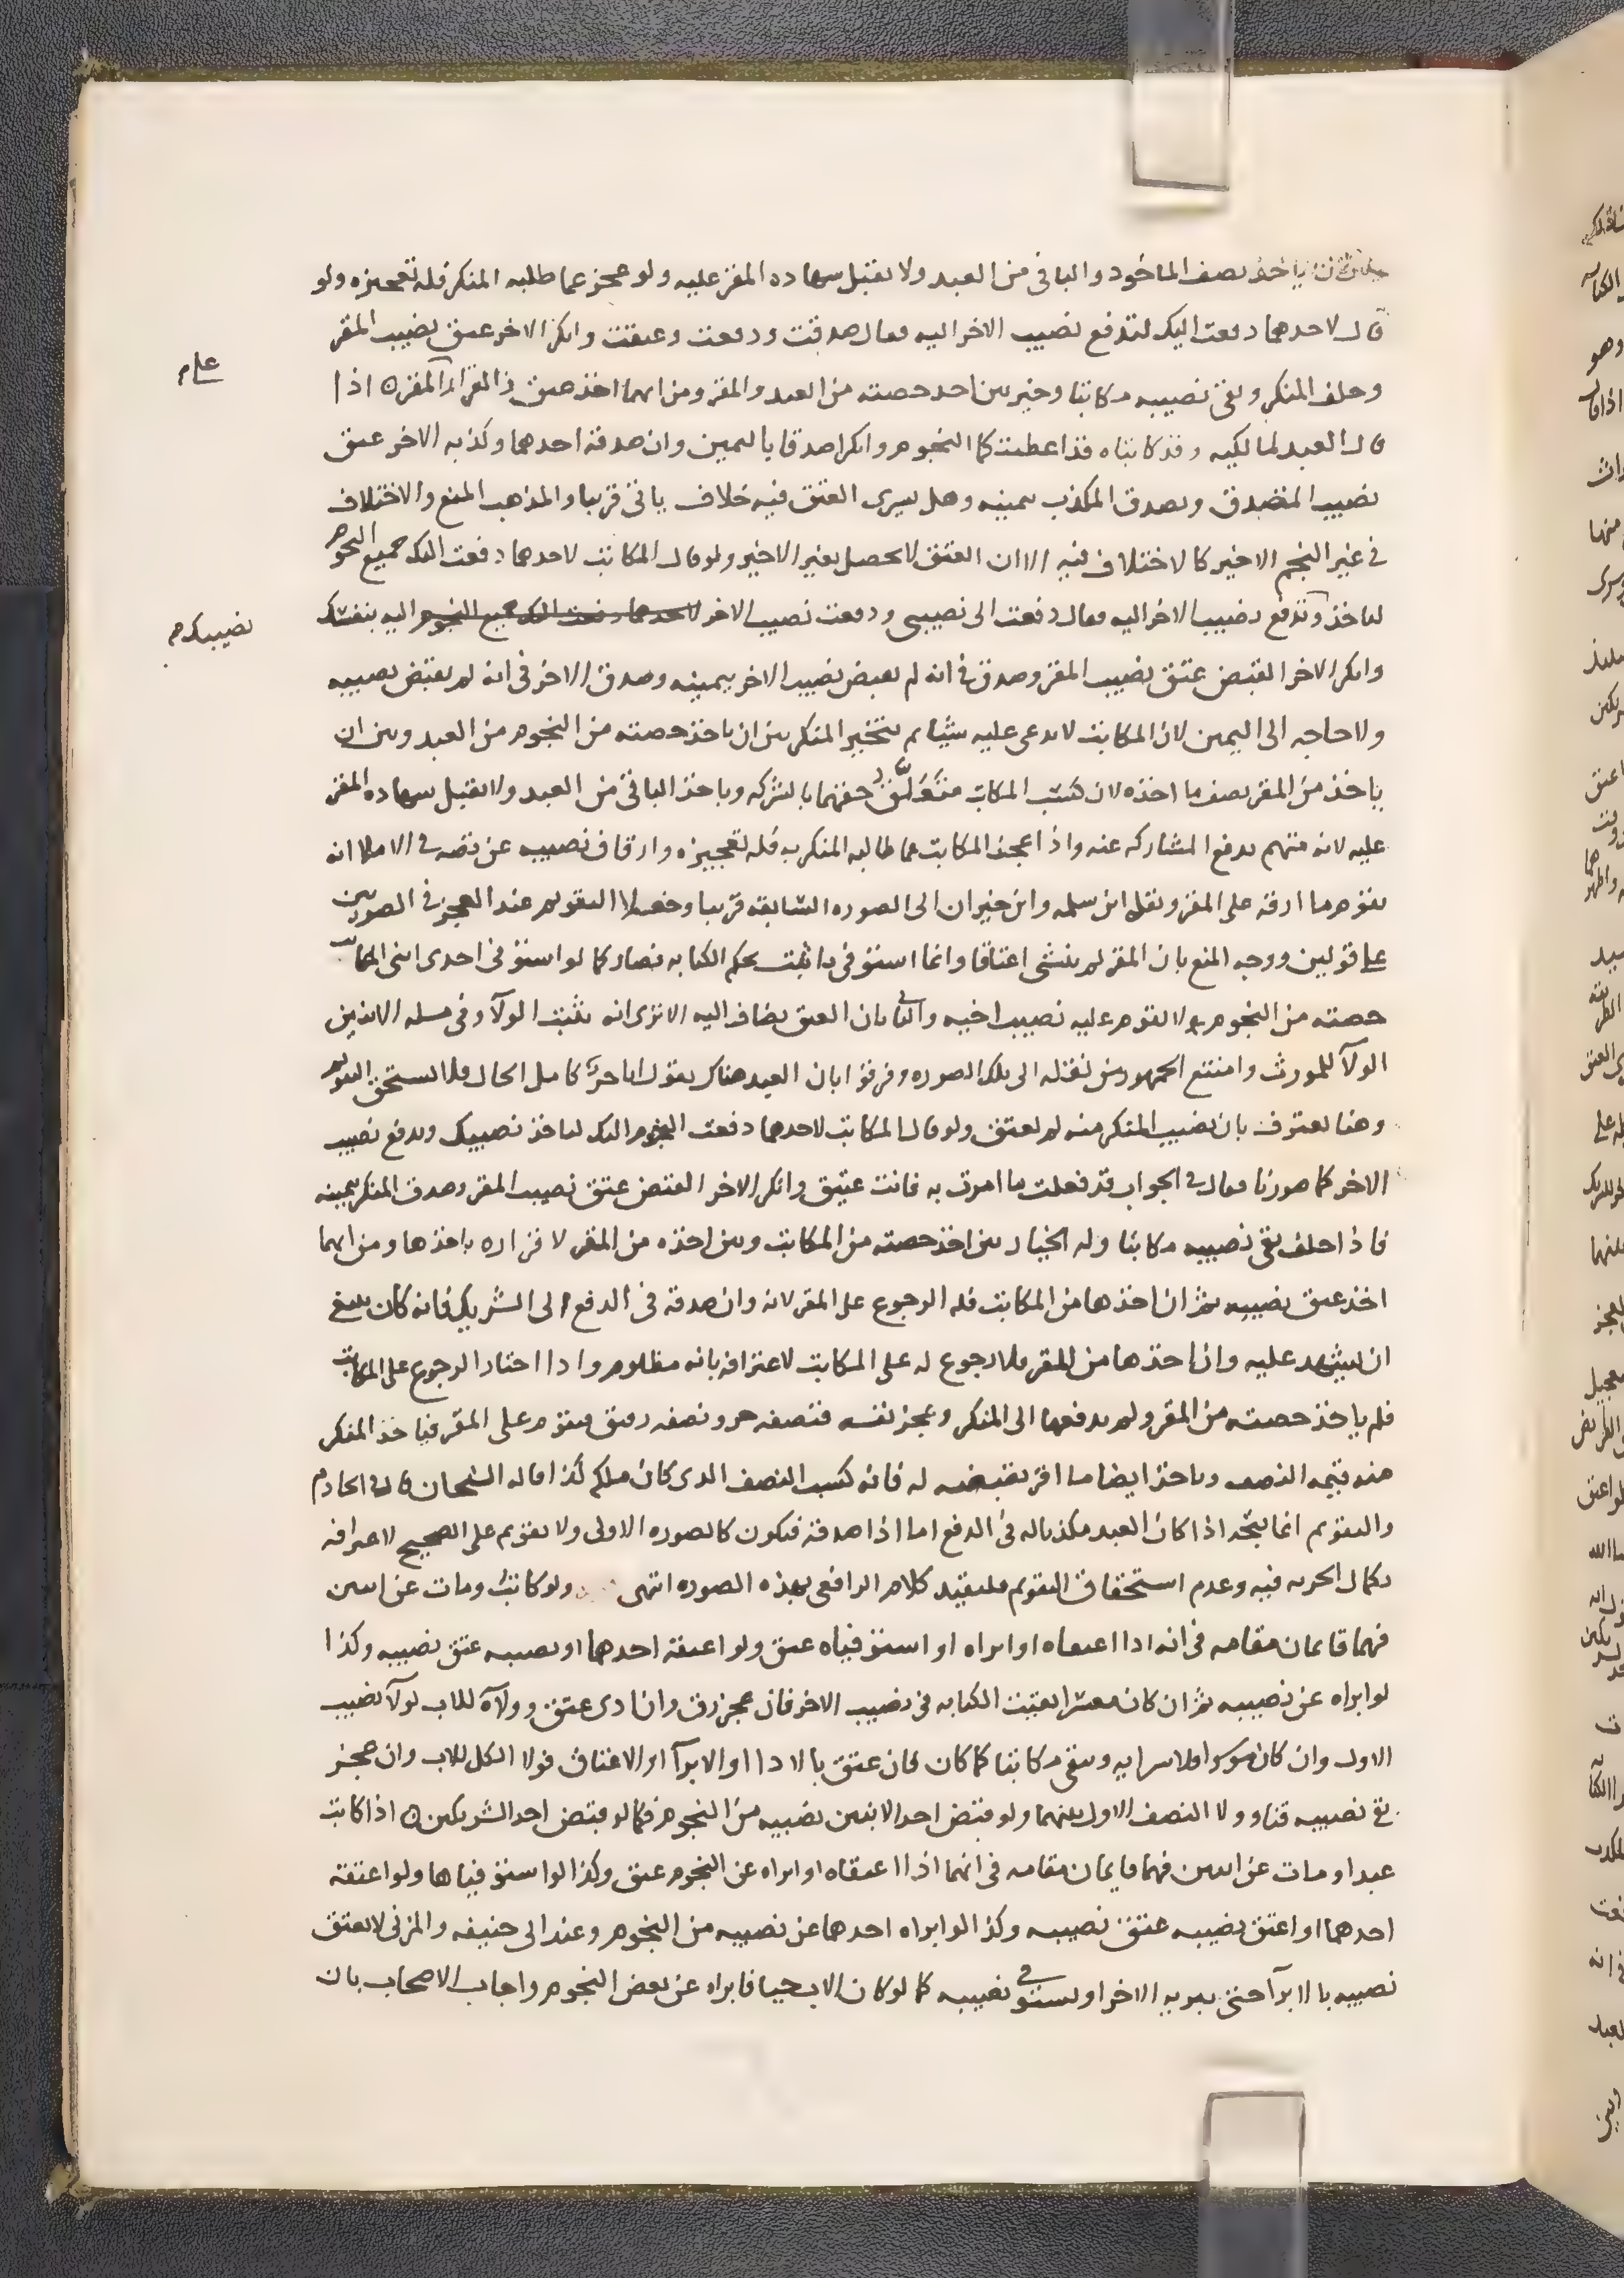 ياخذ نصف الماخود والباقى من العبد ولا يقبل شهاده المقر عليه ولو عجز عما طلبه المنكر فله تعجيزه ولو
قال لاحدهما دفعت اليك لتدفع نصيب الاخر اليه فقال صدقت ودفعت وعتقت وانكر الاخر عتق نصيب المقر
وحلف المنكر وبقى نصيبه مكاتبا وخير بين اخذ حصته من العبد والمقر ومن ايهما اخذ عتق اذا
قال العبد لمالكيه وقد كاتباه قد اعطيتكما النجوم وانكرا صدقا باليمين وان صدقه احدهما وكذبه الاخر عتق
نصيب المصدق وصدق المكذب بيمينه وهل يسرى العتق فيه خلاف ياتى قريبا والمذهب المنع والاختلاف
فى غير النجم الاخير كالاختلاف فيه الا ان العتق لا يحصل بغير الاخير ولو قال المكاتب لاحدهما دفعت اليك جميع النجوم
لتاخذ وتدفع نصيب الاخر اليه فقال دفعت الى نصيبى ودفعت نصيب الاخر لاحدهما دفعت اليك جميع النجوم اليه بنفسك
وانكر الاخر القبض عتق نصيب المقر وصدق فى انه لم يقبض نصيب الاخر بيمينه وصدق الاخر فى انه لم يقبض نصيبه
ولا حاجه الى اليمين لان المكاتب لا يدعى عليه شيئا ثم يتخير المنكر بين ان ياخذ حصته من النجوم من العبد وبين ان
ياخذ من المقر نصف ما اخذه لان كسب المكاتب متعلق حقهما بالشركه وياخذ الباقى من العبد ولا يقبل شهاده المقر
عليه لانه متهم بدفع المشاركه عنه واذا عجز المكاتب عما طالبه المنكر به فله تعجيزه وارقاق نصيبه عن نصه فى الاملا انه
يقوم ما ارقه على المقر ونقله ابن سلمه وابن خيران الى الصوره السابقه قريبا وجعلا التقويم عند العجز فى الصورتين
على قولين ووجه المنع بان المقر لم ينشى اعتاقا وانما استوفى ما ثبت بحكم الكتابه فصار كما لو استوفى احدى ابنى المكاتب
حصته من النجوم لا يقوم عليه نصيب اخيه والثانى بان العتق يضاف اليه الا ترى انه يثبت الولآ وفى مسله الابنين
الولآ للمورث وامتنع الجمهور من نقله الى تلك الصوره وفرقوا بان العبد هناك يقول انا حر كامل الحال فلا يستحق التقويم
وهنا يعترف بان نصيب المنكر منه لم يعتق ولو قال المكاتب لاحدهما دفعت النجوم اليك لتاخذ نصيبك وتدفع نصيب
الاخر كما صورنا فقال فى الجواب قد فعلت ما امرت به فانت عتيق وانكر الاخر القبض عتق نصيب المقر وصدق المنكر بيمينه
فاذا حلف بقى نصيبه مكاتبا وله الخيار بين اخذ حصته من المكاتب وبين اخذه من المقر لاقراره باخذها ومن ايهما
اخذ عتق نصيبه ثم ان اخذها من المكاتب فله الرجوع على المقر لانه وان صدقه فى الدفع الى الشريك فانه كان ينبغى
ان يشهد عليه وان اخذها من المقر فلا رجوع له على المكاتب لاعترافه بانه مظلوم واذا اختار الرجوع على المكاتب
فلم ياخذ حصته من المقر ولم يدفعها الى المنكر وعجز نفسه فنصفه حر ونصفه رقيق فيقوم على المقر فياخذ المنكر
منه قيمه النصف وياخذ ايضا ما اقر بقبضه له فانه كسب النصف الذى كان ملكه كذا قاله الشيخان قال فى الخادم
والتقويم انما يتجه اذا كان العبد مكذبا له فى الدفع اما اذا صدقه فيكون كالصوره الاولى ولا يقوم على الصحيح لاعترافه
بكمال الحريه فيه وعدم استحقاق التقويم فليقيد كلام الرافعى بهذه الصوره انتهى ولو كاتب ومات عن ابنين
فهما قايمان مقامه فى انه اذا اعتقاه او ابراه او استوفياه عتق ولو اعتقه احدهما او نصيبه عتق نصيبه وكذا
لو ابراه عن نصيبه ثم ان كان معسرا بقيت الكتابه فى نصيب الاخر فان عجز رق وان ادى عتق وولآه للاب لولآ نصيب
الاول وان كان موسرا فلا سرايه ويبقى مكاتبا كما كان فان عتق بالاداا او الابرآ او الاعتاق فولا الكل للاب وان عجز
بقى نصيبه قنا وولا النصف الاول بينهما ولو قبض احد الابنين نصيبه من النجوم فكما لو قبض احد الشريكين اذا كاتب
عبدا ومات عن ابنين فهما قايمان مقامه فى انهما اذا اعتقاه او ابراه عن النجوم عتق وكذا لو استوفياها ولو اعتقه
احدهما او اعتق نصيبه عتق نصيبه وكذا لو ابراه احدهما عن نصيبه من النجوم وعند ابى حنيفه والمزنى لا يعتق
نصيبه بالابرآ حتى يبريه الاخر او يستوفى نصيبه كما لو كان الاب حيا فابراه عن بعض النجوم واجاب الاصحاب بان
على
نصيبك